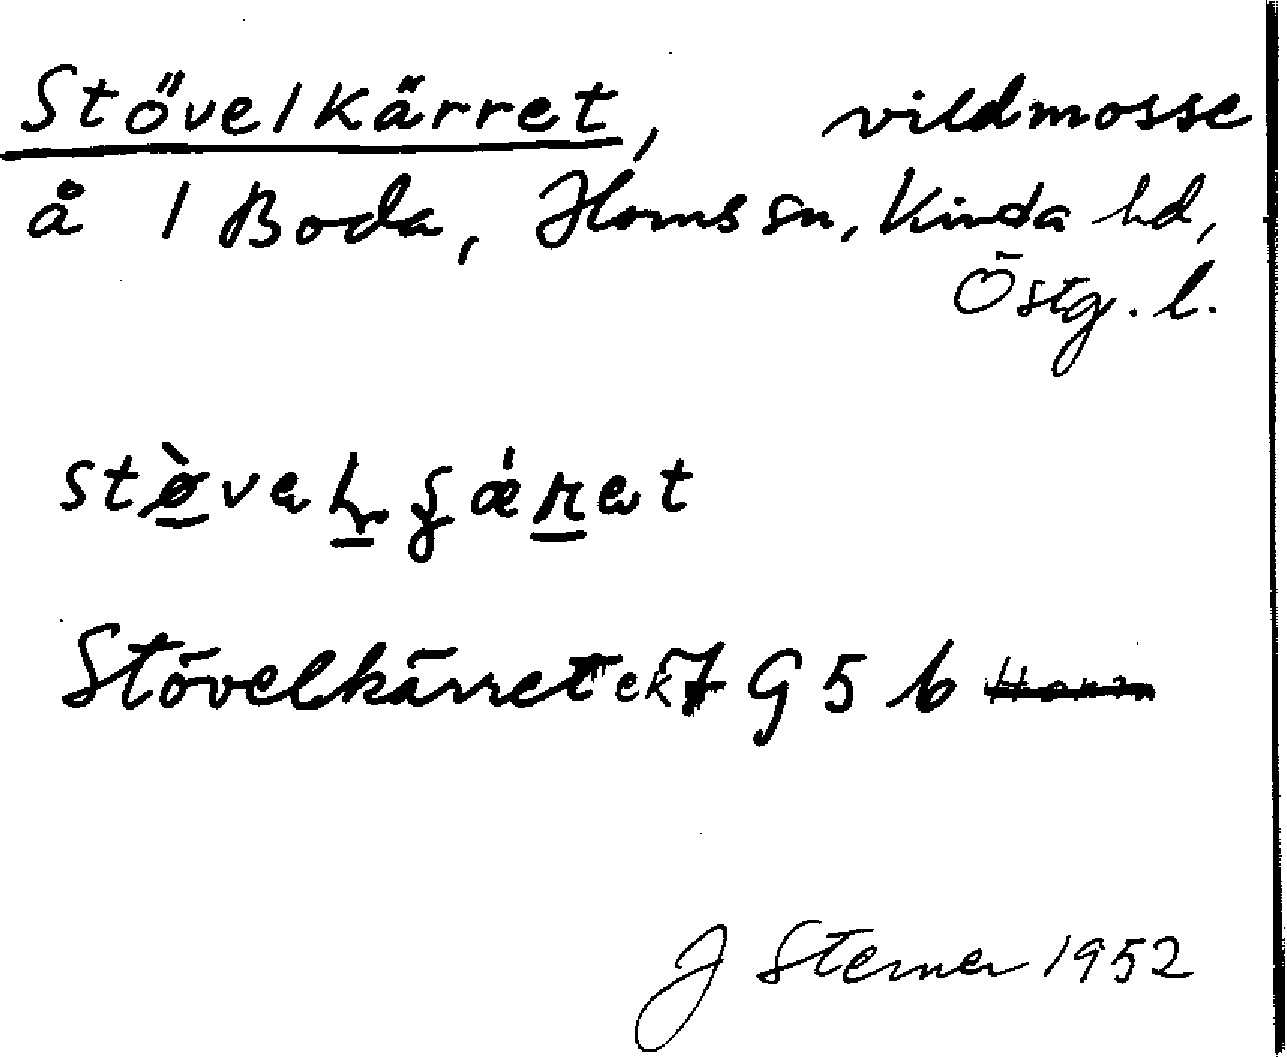 Stövelkärret, vildmosse
å 1 Boda, Horns sn, Kinda hd,
Östg. l.
Stövelkärret ek 7 G 5 b
J Sterner 1952